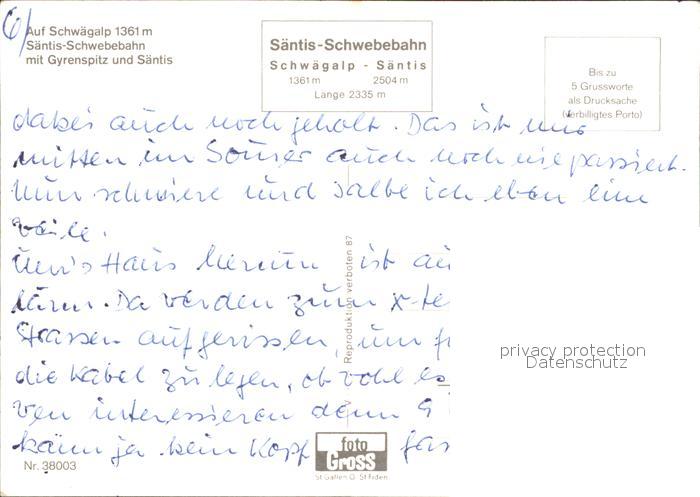 6/
Auf Schwägalp 1361 m
Säntis-Schwebebahn
mit Gyrenspitz und Säntis
Säntis-Schwebebahn
Schwägalp - Säntis
1361 m 2504 m
Länge 2335 m
Bis zu
5 Grussworte
als Drucksache
(verbilligtes Porto)
dabei auch noch geholt. Das ist mir
mitten im Sommer auch noch nie passiert.
Nun schmiere und salbe ich eben eine
Weile.
Um's Haus herum ist
Lärm. Da werden zum x-te
Strassen aufgerissen, um
die Kabel zu legen, obwohl es
wen interessieren denn 9
kann ja kein Kopf fas
Reproduktion verboten 87
privacy protection
Datenschutz
foto
Gross
St Gallen O. St Fiden
Nr. 38003